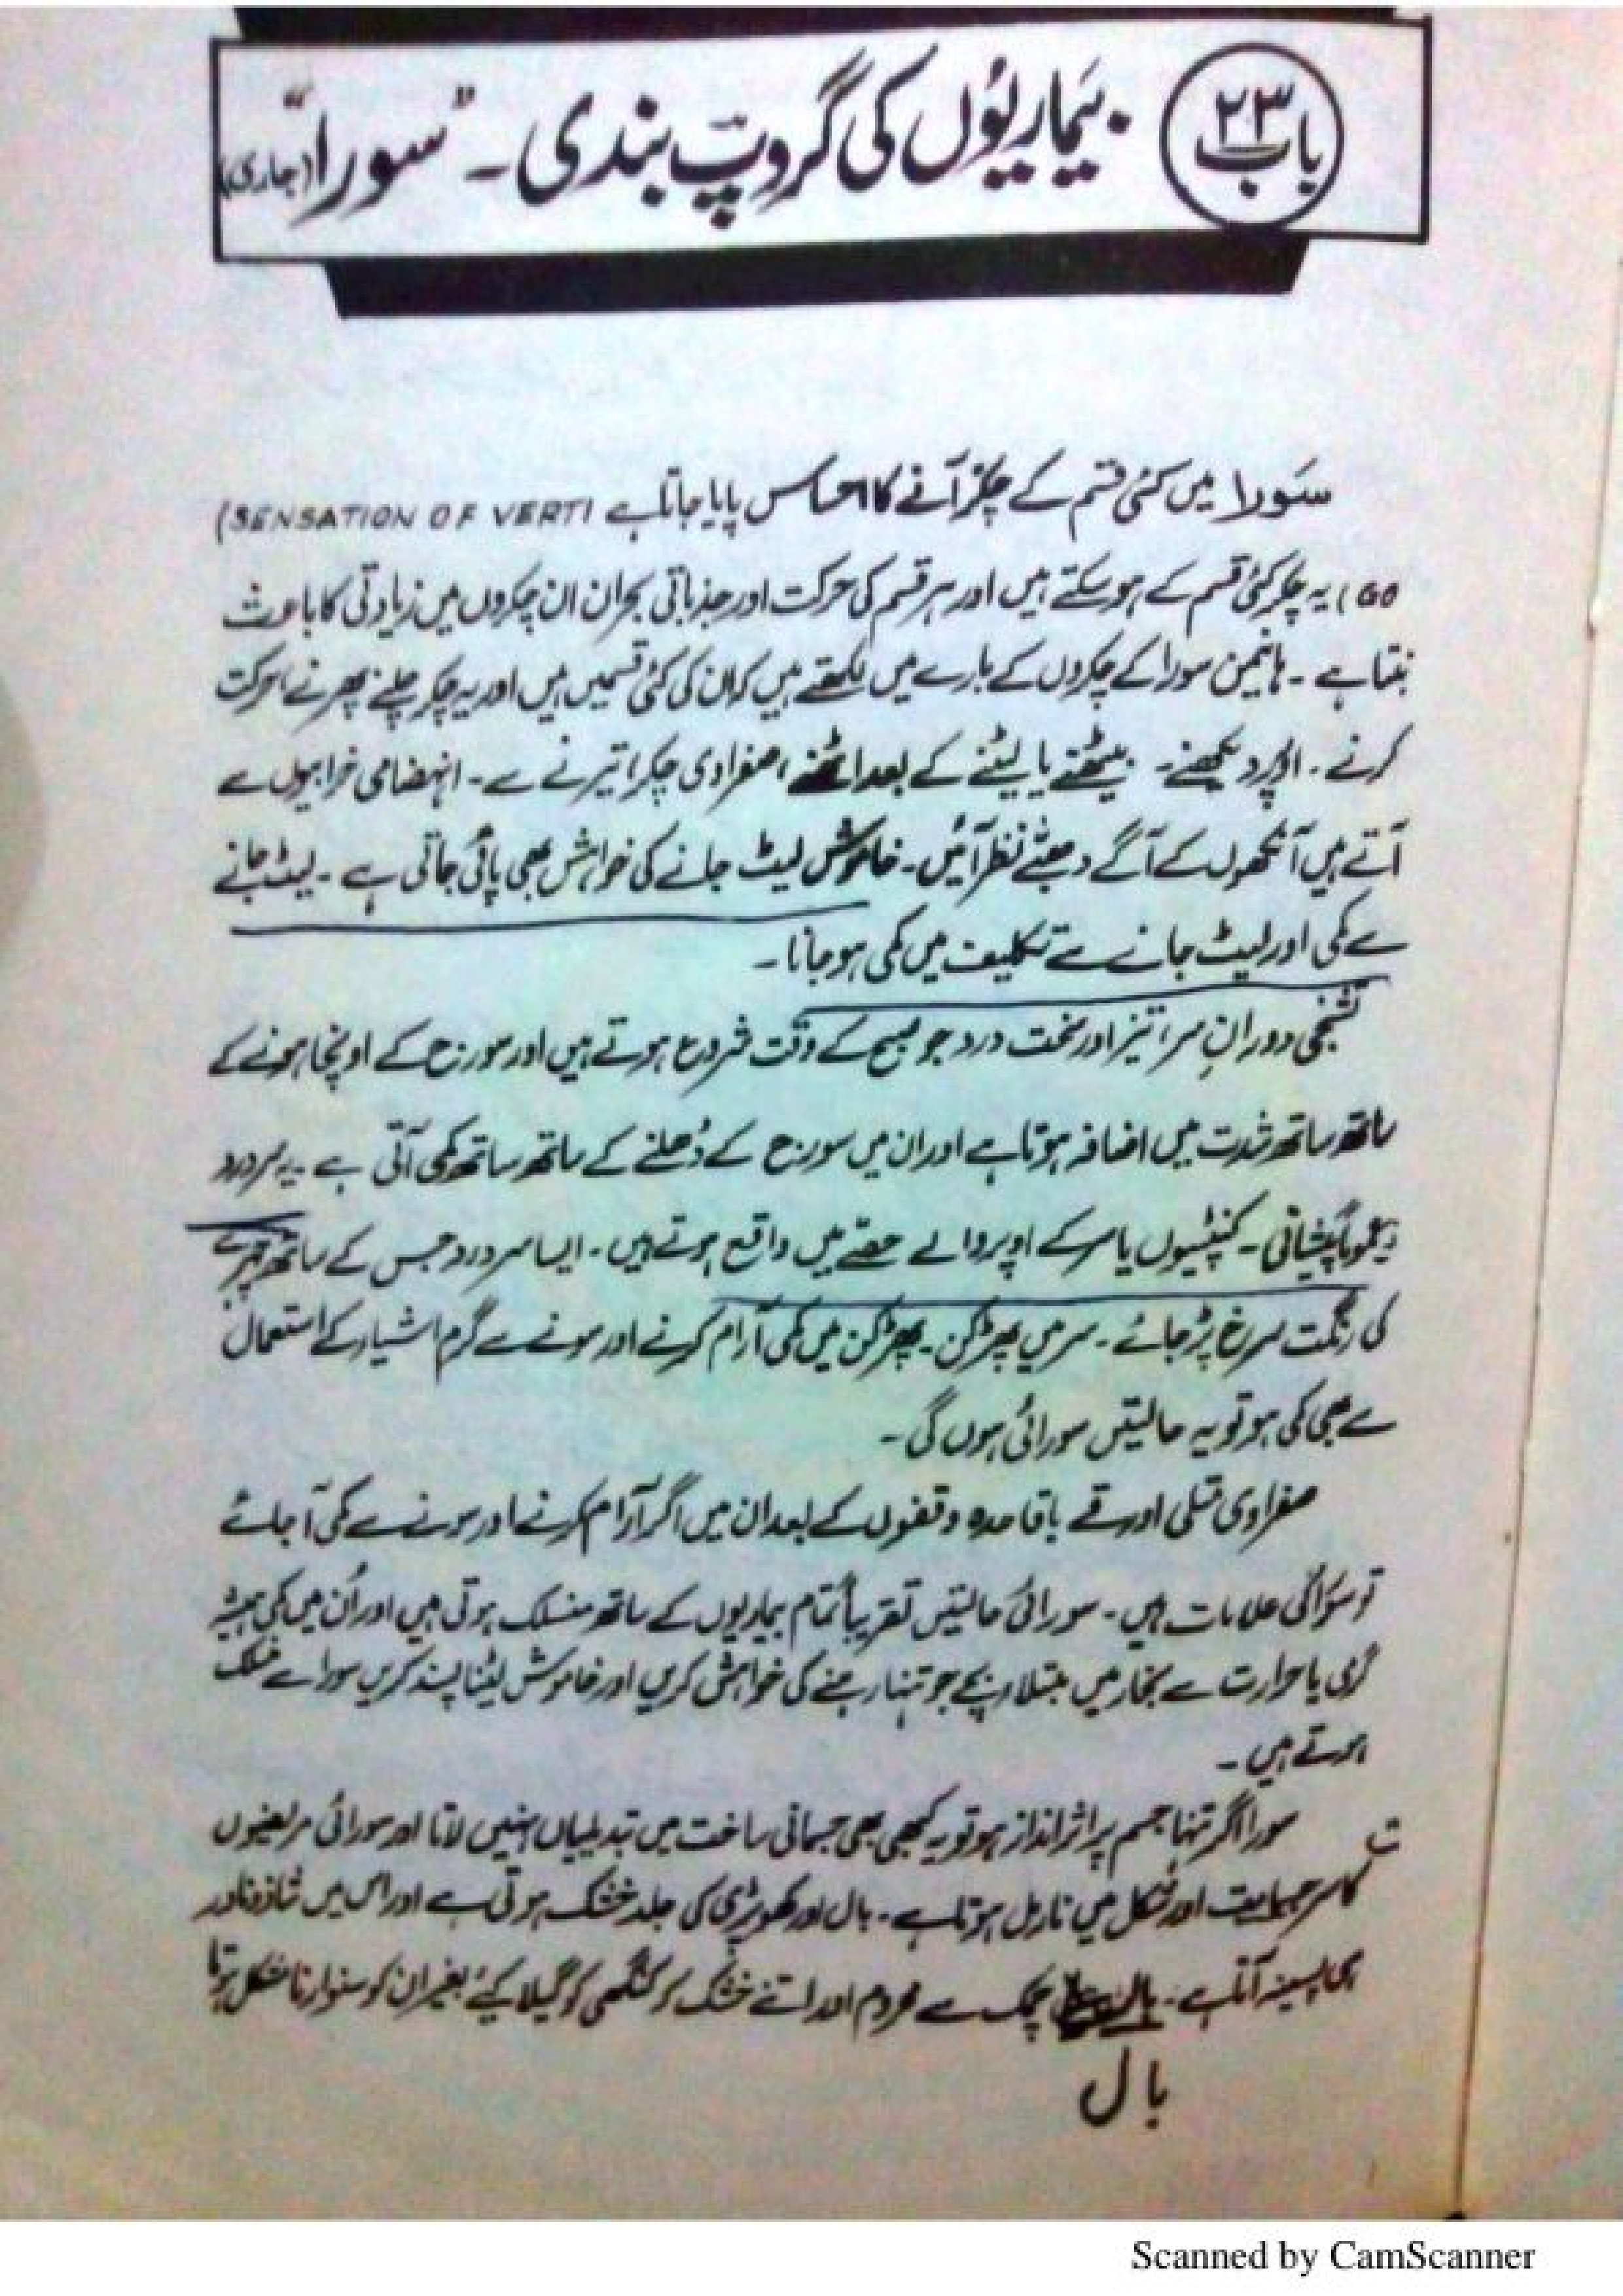 باب ۲۳
بیماریوں کی گروپ بندی۔ "سورا" (جاری)
سورا میں کئی قسم کے چکر آنے کا احساس پایا جاتا ہے (SENSATION OF VERTI
GO) یہ چکر کئی قسم کے ہو سکتے ہیں اور ہر قسم کی حرکت اور جذباتی بحران ان چکروں میں زیادتی کا باعث
بنتا ہے۔ ہانیمن سورا کے چکروں کے بارے میں لکھتے ہیں کہ ان کی کئی قسمیں ہیں اور یہ چکر چلنے پھرنے، حرکت
کرنے۔ اوپر دیکھنے۔ بیٹھنے یا لیٹنے کے بعد اٹھنے، صفراوی چکر، تیرنے سے۔ انہضامی خرابیوں سے
آتے ہیں آنکھوں کے آگے دھبے نظر آئیں۔ خاموش لیٹ جانے کی خواہش بھی پائی جاتی ہے۔ لیٹ جانے
سے کمی اور لیٹ جانے سے تکلیف میں کمی ہو جانا۔
تشنجی دورانِ سر، تیز اور سخت درد جو صبح کے وقت شروع ہوتے ہیں اور سورج کے اونچا ہونے کے
ساتھ ساتھ شدت میں اضافہ ہوتا ہے اور ان میں سورج کے ڈھلنے کے ساتھ ساتھ کمی آتی ہے۔ یہ سردرد
عموماً پیشانی۔ کنپٹیوں یا سر کے اوپر والے حصے میں واقع ہوتے ہیں۔ ایسا سردرد جس کے ساتھ چہرے
کی رنگت سرخ پڑ جائے۔ سر میں پھڑکن۔ پھڑکن میں کمی آرام کرنے اور سونے سے گرم اشیاء کے استعمال
سے بھی کمی ہو تو یہ حالیتں سورائی ہوں گی۔
صفراوی متلی اور قے باقاعدہ وقفوں کے بعد ان میں اگر آرام کرنے اور سونے سے کمی آ جائے
تو سورا کی علامات ہیں۔ سورائی حالیتں تقریباً تمام بیماریوں کے ساتھ منسلک ہوتی ہیں اور اُن میں کمی ہمیشہ
گرمی یا حرارت سے بخار میں مبتلا وہ بچے جو تنہا رہنے کی خواہش کریں اور خاموش لیٹنا پسند کریں سورا سے منسلک
ہوتے ہیں۔
سورا اگر تنہا جسم پر اثر انداز ہو تو یہ کبھی بھی جسمانی ساخت میں تبدیلیاں نہیں لاتا اور سورائی مریضوں
کا سر جسامت اور شکل میں نارمل ہوتا ہے۔ بال اور کھوپڑی کی جلد خشک ہوتی ہے اور اس میں شاذ و نادر
ہی پسینہ آتا ہے۔ چمک سے محروم اور اتنے خشک کہ کنگھی کو گیلا کیے بغیر ان کو سنوارنا مشکل ہوتا
بال
Scanned by CamScanner